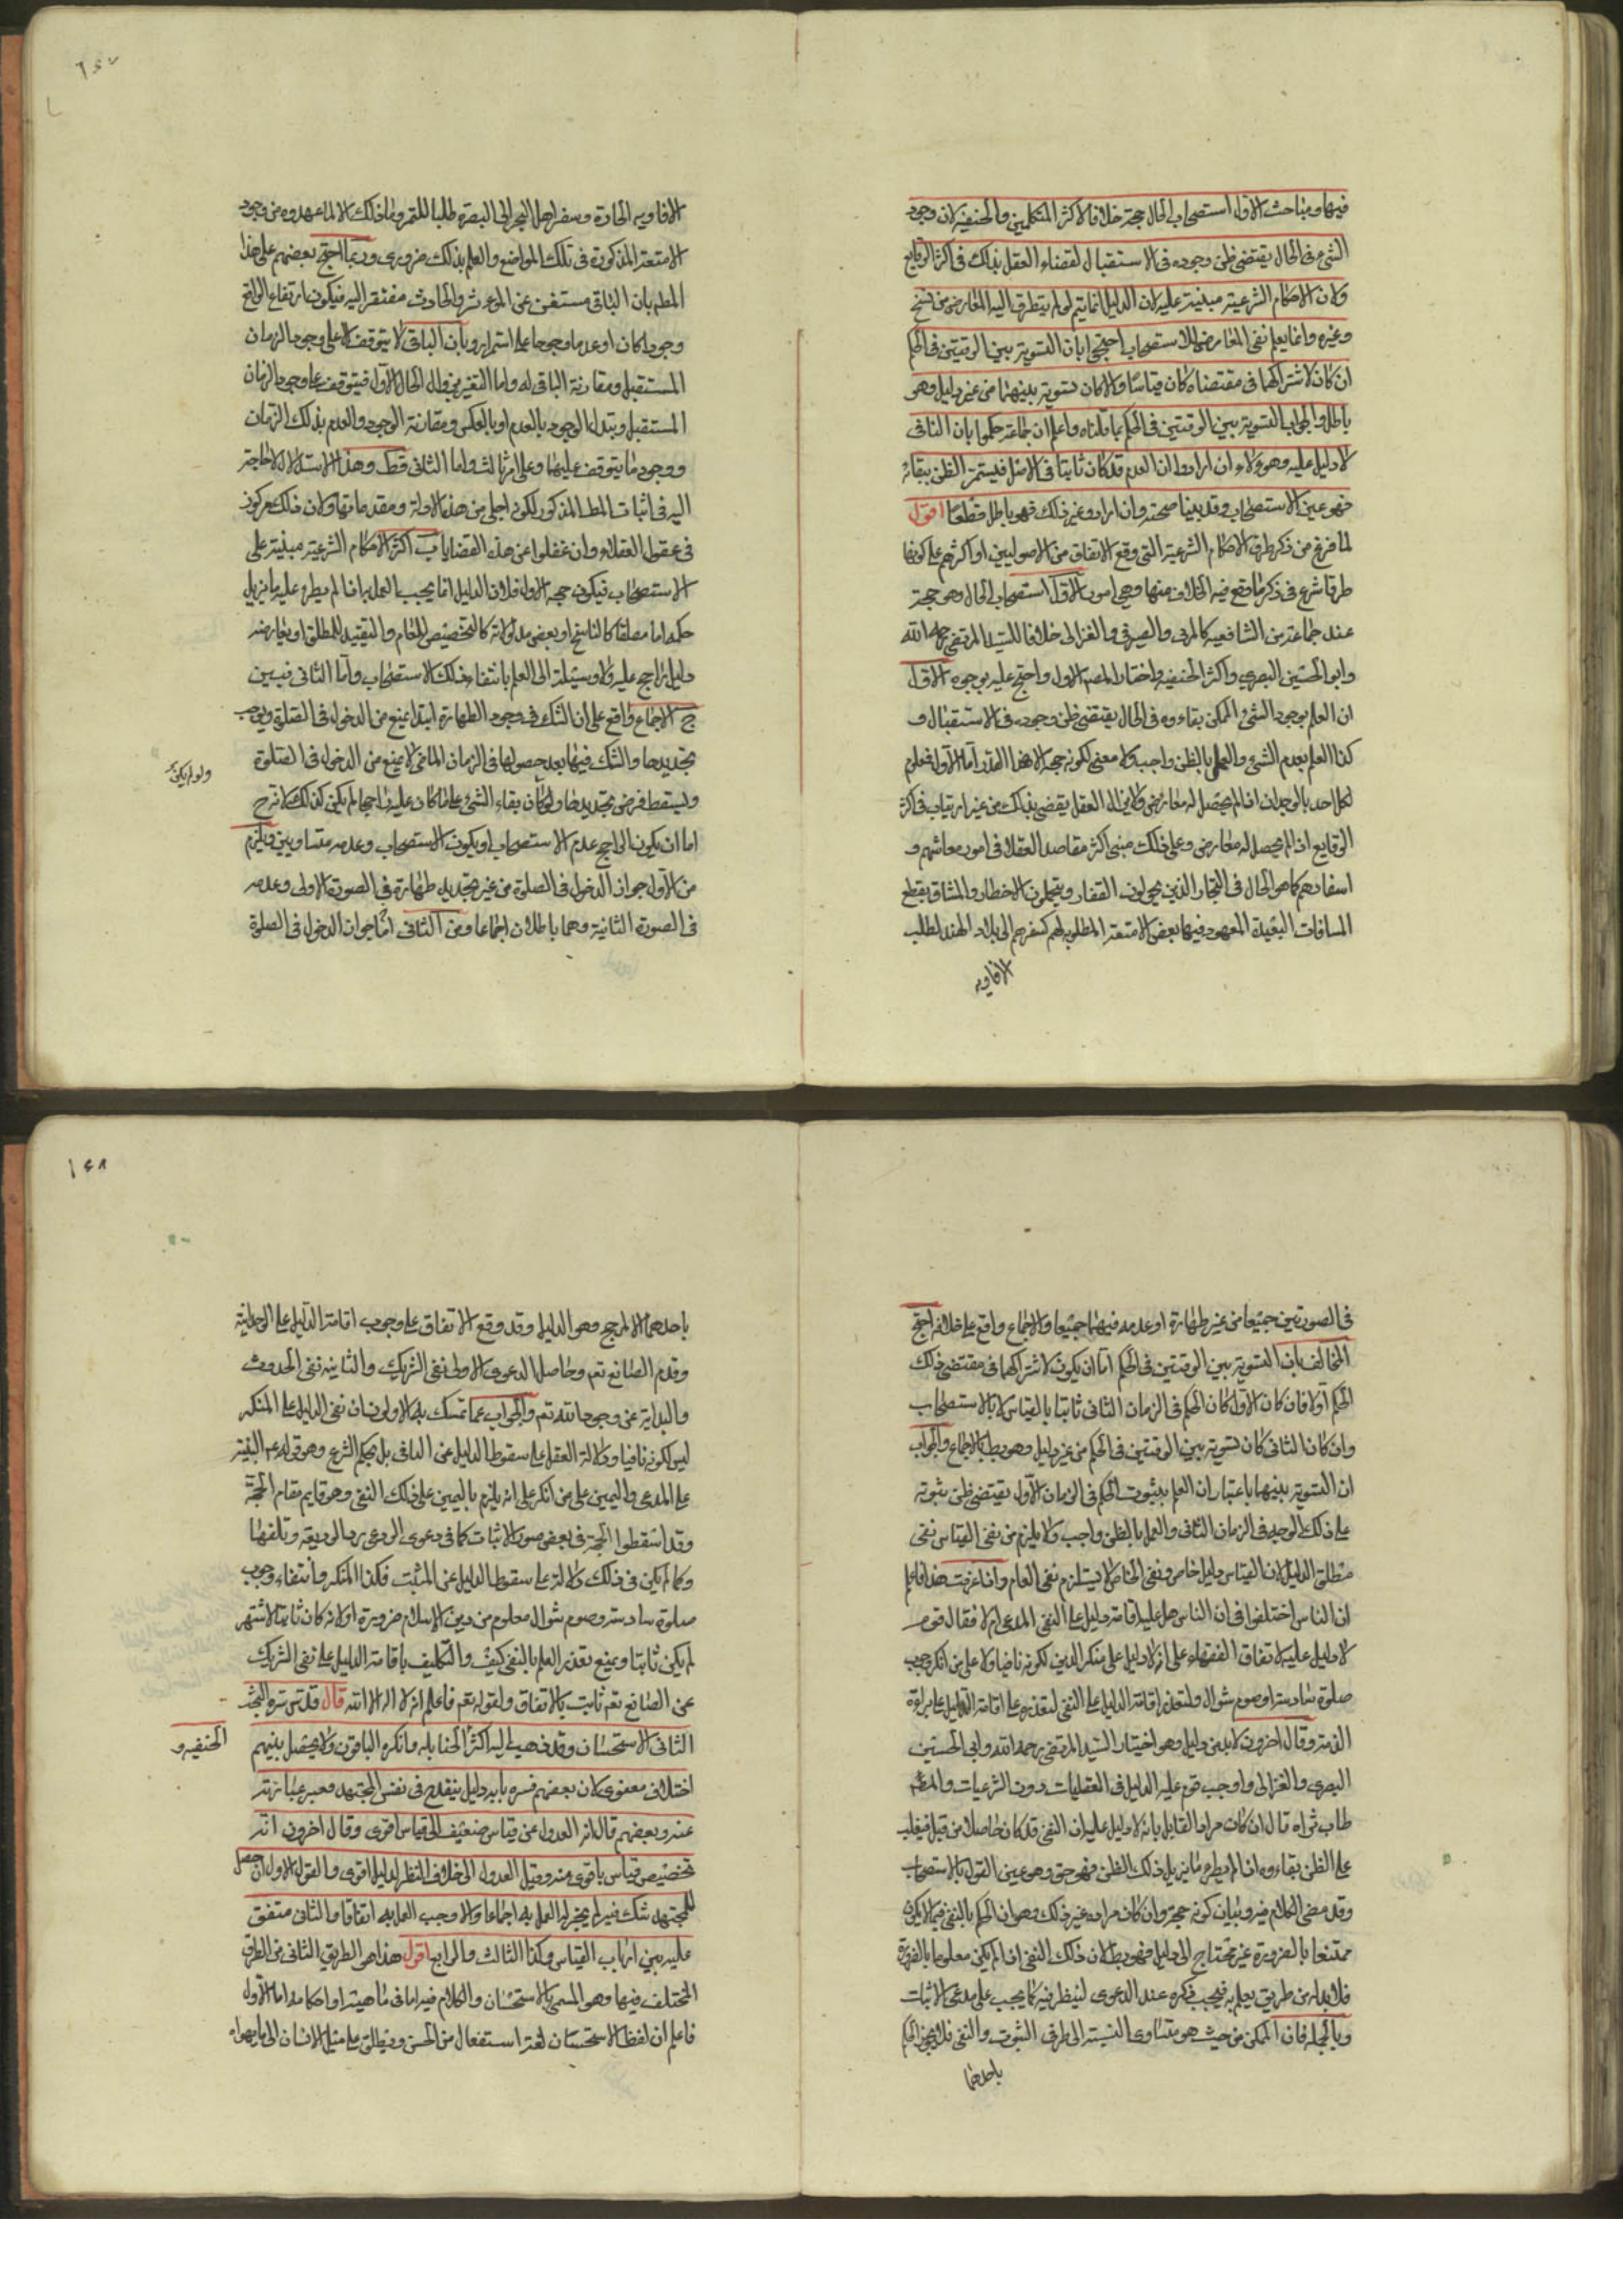 فيها وفيه مباحث الاول استصحاب الحال حجة خلافا لاكثر المتكلمين والحنفية لان وجود
الشيء في الحال يقتضي ظن وجوده في الاستقبال لقضاء العقل بذلك في اكثر الوقايع
ولان الاحكام الشرعية مبنية عليه لان الدليل انما يتم لو لم يتطرق اليه المعارض من نسخ
وغيره وانما يعلم نفي المعارض بالاستصحاب احتجوا بان التسوية بين الوقتين في الحكم
ان كان لاشتراكهما في مقتضاه كان قياسا والا كان تسوية بينهما من غير دليل وهو
باطل والجواب التسوية بين الوقتين في الحكم بما قلناه واعلم ان جماعة حكموا بان النافي
لا دليل عليه وهؤلاء ان ارادوا ان العدم قد كان ثابتا في الاصل فيستمر الظن ببقائه
فهو عين الاستصحاب وقد بينا صحته وان ارادوا غير ذلك فهو باطل قطعا اقول
لما فرغ من ذكر طرق الاحكام الشرعية التي وقع الاتفاق من الاصوليين او اكثرهم على كونها
طرقا شرع في ذكر ما وقع فيه الخلاف منها وهي امور الاول استصحاب الحال وهو حجة
عند جماعة من الشافعية كالمزني والصيرفي والغزالي خلافا للسيد المرتضى رحمه الله
وابو الحسين البصري واكثر الحنفية واختار المصنف الاول واحتج عليه بوجوه الاول
ان العلم بوجود الشيء الممكن بقاءوه في الحال يقتضي ظن وجوده في الاستقبال و
كذا العلم بعدم الشيء والعمل بالظن واجب ولا معنى لكونه حجة الا هذا القدر اما الاول فمعلوم
لكل احد بالوجدان اذا لم يحصل له معارض ولان العقل يقضي بذلك من غير ارتياب في اكثر
الوقايع اذا لم يحصل له معارض وعلى ذلك مبنى اكثر مقاصد العقلاء في امور معاشهم و
اسفارهم كما هو الحال في التجار الذين يجولون القفار ويتحملون الاخطار والمشاق بقطع
المسافات البعيدة المعهود فيها بعض الامتعة المطلوبة لهم كسفرهم الى بلاد الهند لطلب
الافاويه
الافاويه الحادة وسفر اهل البحر الى البصرة طلبا للتمر وما ذلك الا لما عهدوه من وجود
الامتعة المذكورة في تلك المواضع والعلم بذلك ضروري وربما احتج بعضهم على هذا
المطلب بان الباقي مستغن عن الموثر والحادث مفتقر اليه فيكون ارتفاع الواقع
وجودا كان او عدما مرجوحا على استمراره وبان الباقي لا يتوقف الا على وجود الزمان
المستقبل ومقارنة الباقي له واما التغير من زوال الحال الاول فيتوقف على وجود الزمان
المستقبل وتبدل الوجود بالعدم او بالعكس ومقارنة الوجود والعدم بذلك الزمان
ووجود ما يتوقف عليهما وعلى امر ثالث واما الثاني قط وهذا الاستدلال لا حاجة
اليه في اثبات المطلب المذكور لكونه اجلى من هذه الادلة ومقدماتها ولان ذلك مركوز
في عقول العقلاء وان غفلوا عن هذه القضايا ب اكثر الاحكام الشرعية مبنية على
الاستصحاب فيكون حجة الاول فلان الدليل انما يجب العمل به اذا لم يطرء عليه ما يزيل
حكمه اما مطلقا كالناسخ او بعض مدلولاته كالتخصيص للعام والتقييد للمطلق او يعارضه
دليل راجح عليه ولا وسيلة الى العلم بانتفاء ذلك الا الاستصحاب واما الثاني فبين
ج الاجماع واقع على ان الشك في وجود الطهارة ابتداء يمنع من الدخول في الصلوة ويوجب
تجديدها والشك فيها بعد حصولها في الزمان الماضي لا يمنع من الدخول في الصلوة
ويسقط فرض تجديدها ولو كان بقاء الشيء على ما كان عليه راجحا لم يكن كذلك لانه ح
ولو لم يكن
اما ان يكون الراجح عدم الاستصحاب او يكون الاستصحاب وعدمه متساويين ويلزم
من الاول جواز الدخول في الصلوة من غير تجديد طهارة في الصورة الاولى وعدمه
في الصورة الثانية وهما باطلان اجماعا ومن الثاني اما جواز الدخول في الصلوة
في الصورتين جميعا من غير طهارة او عدمه فيهما جميعا والاجماع واقع على خلافه احتج
المخالف بان التسوية بين الوقتين في الحكم اما ان يكون لاشتراكهما في مقتضى ذلك
الحكم او لا فان كان الاول كان الحكم في الزمان الثاني ثابتا بالقياس لا بالاستصحاب
وان كان الثاني كان تسوية بين الوقتين في الحكم من غير دليل وهو بط بالاجماع والجواب
ان التسوية بينهما باعتبار ان العلم بثبوت الحكم في الزمان الاول يقتضي ظن ثبوته
على ذلك الوجه في الزمان الثاني والعمل بالظن واجب ولا يلزم من نفي القياس نفي
مطلق الدليل لان القياس دليل خاص ونفي الخاص لا يستلزم نفي العام واذا عرفت هذا فاعلم
ان الناس اختلفوا في ان الناس هل عليه اقامة دليل على النفي المدعى ام لا فقال قوم
لا دليل عليه لاتفاق الفقهاء على انه لا دليل على منكر الدين لكونه نافيا ولا على من انكر وجوب
صلوة سادسة او صوم شوال ولتعذر اقامة الدليل على النفي لتعذره على اقامة الدليل على براءة
الذمة وقال اخرون لا بد من دليل وهو اختيار السيد المرتضى رحمه الله وابي الحسين
البصري والغزالي واوجب قوم عليه الدليل في العقليات دون الشرعيات والمصنف
طاب ثراه قال ان كان مراد القايل بانه لا دليل عليه ان النفي قد كان حاصلا من قبل فيغلب
على الظن بقاءوه اذا لم يطرء ما يزيل ذلك الظن فهو حق وهو عين القول بالاستصحاب
وقد مضى الكلام فيه وبيان كونه حجة وان كان مراده غير ذلك وهو ان الحكم بالنفي فيما لا يكون
ممتنعا بالضرورة غير محتاج الى دليل فهو بط لان ذلك النفي اذا لم يكن معلوما بالضرورة
فلا بد له من طريق يعلم به فيجب ذكره عند الدعوى لينظر فيه كما يجب على مدعي الاثبات
وبالجملة فان الممكن من حيث هو متساوي النسبة الى طرفي الثبوت والنفي فلا يجوز الحكم
باحدهما
باحدهما الا لمرجح وهو الدليل وقد وقع الاتفاق على وجوب اقامة الدليل على الوحدانية
وقدم الصانع تعم وحاصل الدعوى الاولى نفي الشريك والثانية نفي الحدوث
والبداية عن وجود الله تعم والجواب عما تمسك به الاولون ان نفي الدليل على المنكر
ليس لكونه نافيا ودلالة العقل على سقوط الدليل عن النافي بل بحكم الشرع وهو قوله عم البينة
على المدعي واليمين على من انكر على انه يلزم باليمين على ذلك النفي وهو قايم مقام الحجة
وقد اسقطوا الحجة في بعض صور الاثبات كما في دعوى الودعي رد الوديعة وتلفها
وكما لم يكن في ذلك دلالة على سقوط الدليل عن المثبت فكذا المنكر وانتفاء وجوب
صلوة سادسة وصوم شوال معلوم من دين الاسلام ضرورة او لانه لو كان ثابتا لاشتهر
لم يكن ثابتا ويمنع تعذر العلم بالنفي كيف والتكليف باقامة الدليل على نفي الشريك
عن الصانع تعم ثابت بالاتفاق ولقوله تعم فاعلم انه لا اله الا الله قال قدس سره البحث
الثاني الاستحسان وقد ذهب اليه اكثر الحنابلة وانكره الباقون ولا يحصل بينهم
الحنفية و
اختلاف معنوي لان بعضهم فسره بانه دليل ينقدح في نفس المجتهد ومعبر عبارته
عنه وبعضهم قال انه العدول عن قياس ضعيف الى قياس اقوى وقال اخرون انه
تخصيص قياس باقوى منه وقيل العدول الى خلاف النظر لدليل اقوى والقول الاول ان حصل
للمجتهد شك فيه لم يجز له العمل به اجماعا والا وجب العمل به اتفاقا والثاني متفق
عليه بين ارباب القياس وكذا الثالث والرابع اقول هذا هو الطريق الثاني من الطرق
المختلف فيها وهو المسمى بالاستحسان والكلام فيه اما في ماهيته او احكامه اما الاول
فاعلم ان لفظ الاستحسان لغة استفعال من الحسن ويطلق على ميل الانسان الى ما يهواه